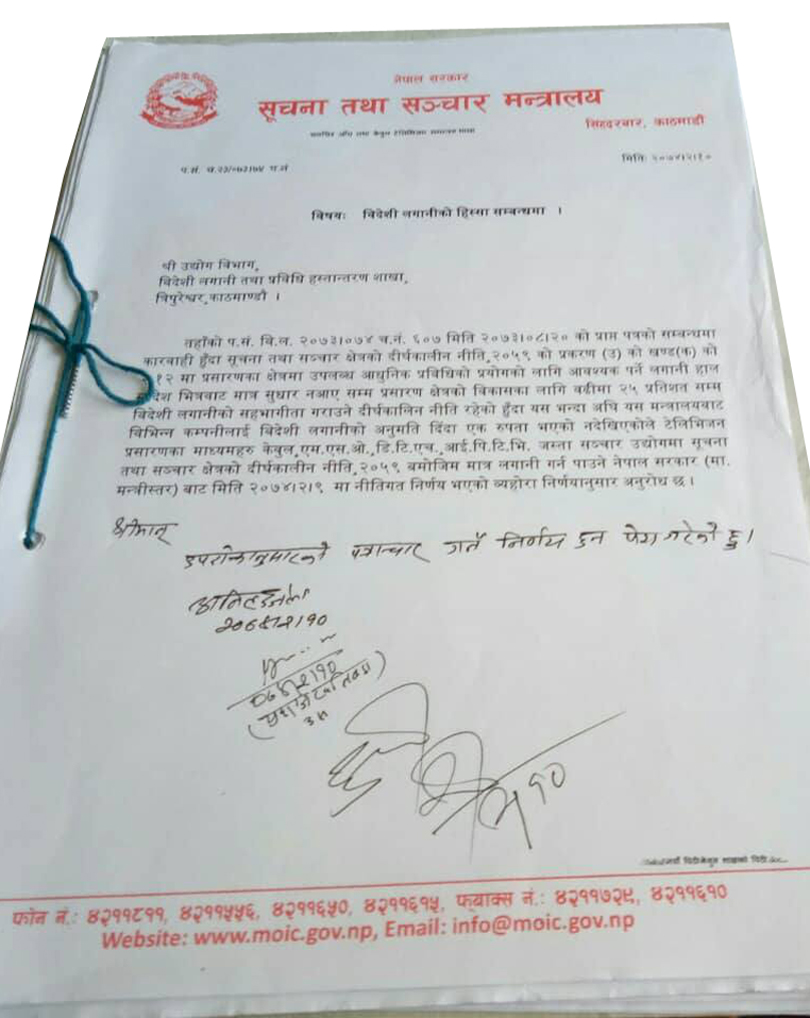 नेपाल सरकार
सूचना तथा सञ्चार मन्त्रालय
सिंहदरबार, काठमाडौं
मितिः २०७४।२।१०
प.सं.
विषयः विदेशी लगानीको हिस्सा सम्बन्धमा ।
श्री उद्योग विभाग,
विदेशी लगानी तथा प्रविधि हस्तान्तरण शाखा,
त्रिपुरेश्वर,काठमाण्डौ ।
तहाँको प.सं. वि.ल. २०७३।०७४ च.नं. ६०७ मिति २०७३।०८।२० को प्राप्त पत्रको सम्बन्धमा
कारवाही हुँदा सूचना तथा सञ्चार क्षेत्रको दीर्घकालीन नीति,२०५९ को प्रकरण (उ) को खण्ड(क) को
१२ मा प्रसारणका क्षेत्रमा उपलब्ध आधुनिक प्रविधिको प्रयोगको लागि आवश्यक पर्ने लगानी हाल
भित्रबाट मात्र सुधार नआए सम्म प्रसारण क्षेत्रको विकासका लागि बढीमा २५ प्रतिशत सम्म
विदेशी लगानीको सहभागीता गराउने दीर्घकालिन नीति रहेको हुँदा यस भन्दा अघि यस मन्त्रालयबाट
विभिन्न कम्पनीलाई विदेशी लगानीको अनुमति दिंदा एक रुपता भएको नदेखिएकोले टेलिभिजन
प्रसारणका माध्यमहरु केवुल,एम.एस.ओ.,डि.टि.एच.,आई.पि.टि.भि. जस्ता सञ्चार उद्योगमा सूचना
तथा सञ्चार क्षेत्रको दीर्घकालीन नीति,२०५९ बमोजिम मात्र लगानी गर्न पाउने नेपाल सरकार (मा.
मन्त्रीस्तर) बाट मिति २०७४।२।९ मा नीतिगत निर्णय भएको व्यहोरा निर्णयानुसार अनुरोध छ ।
श्रीमान्
उपरोक्तानुसारको पत्राचार गर्ने निर्णय हुन पेश गरेको छु ।
२०७४।२।१०
०७४।२।१०
फोन नं.: ४२११८११, ४२११५५६, ४२११६५०, ४२११६१५, फ्याक्स नं.: ४२११७२९, ४२११६१०
Website: www.moic.gov.np, Email: info@moic.gov.np